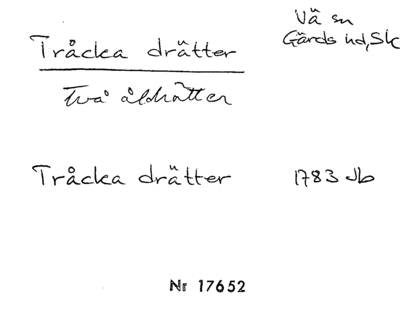 Vä sn
Tråcka drätter Gärds hd, Sk
Två åldrätter
Tråcka drätter 1783 Jb
Nr 17652